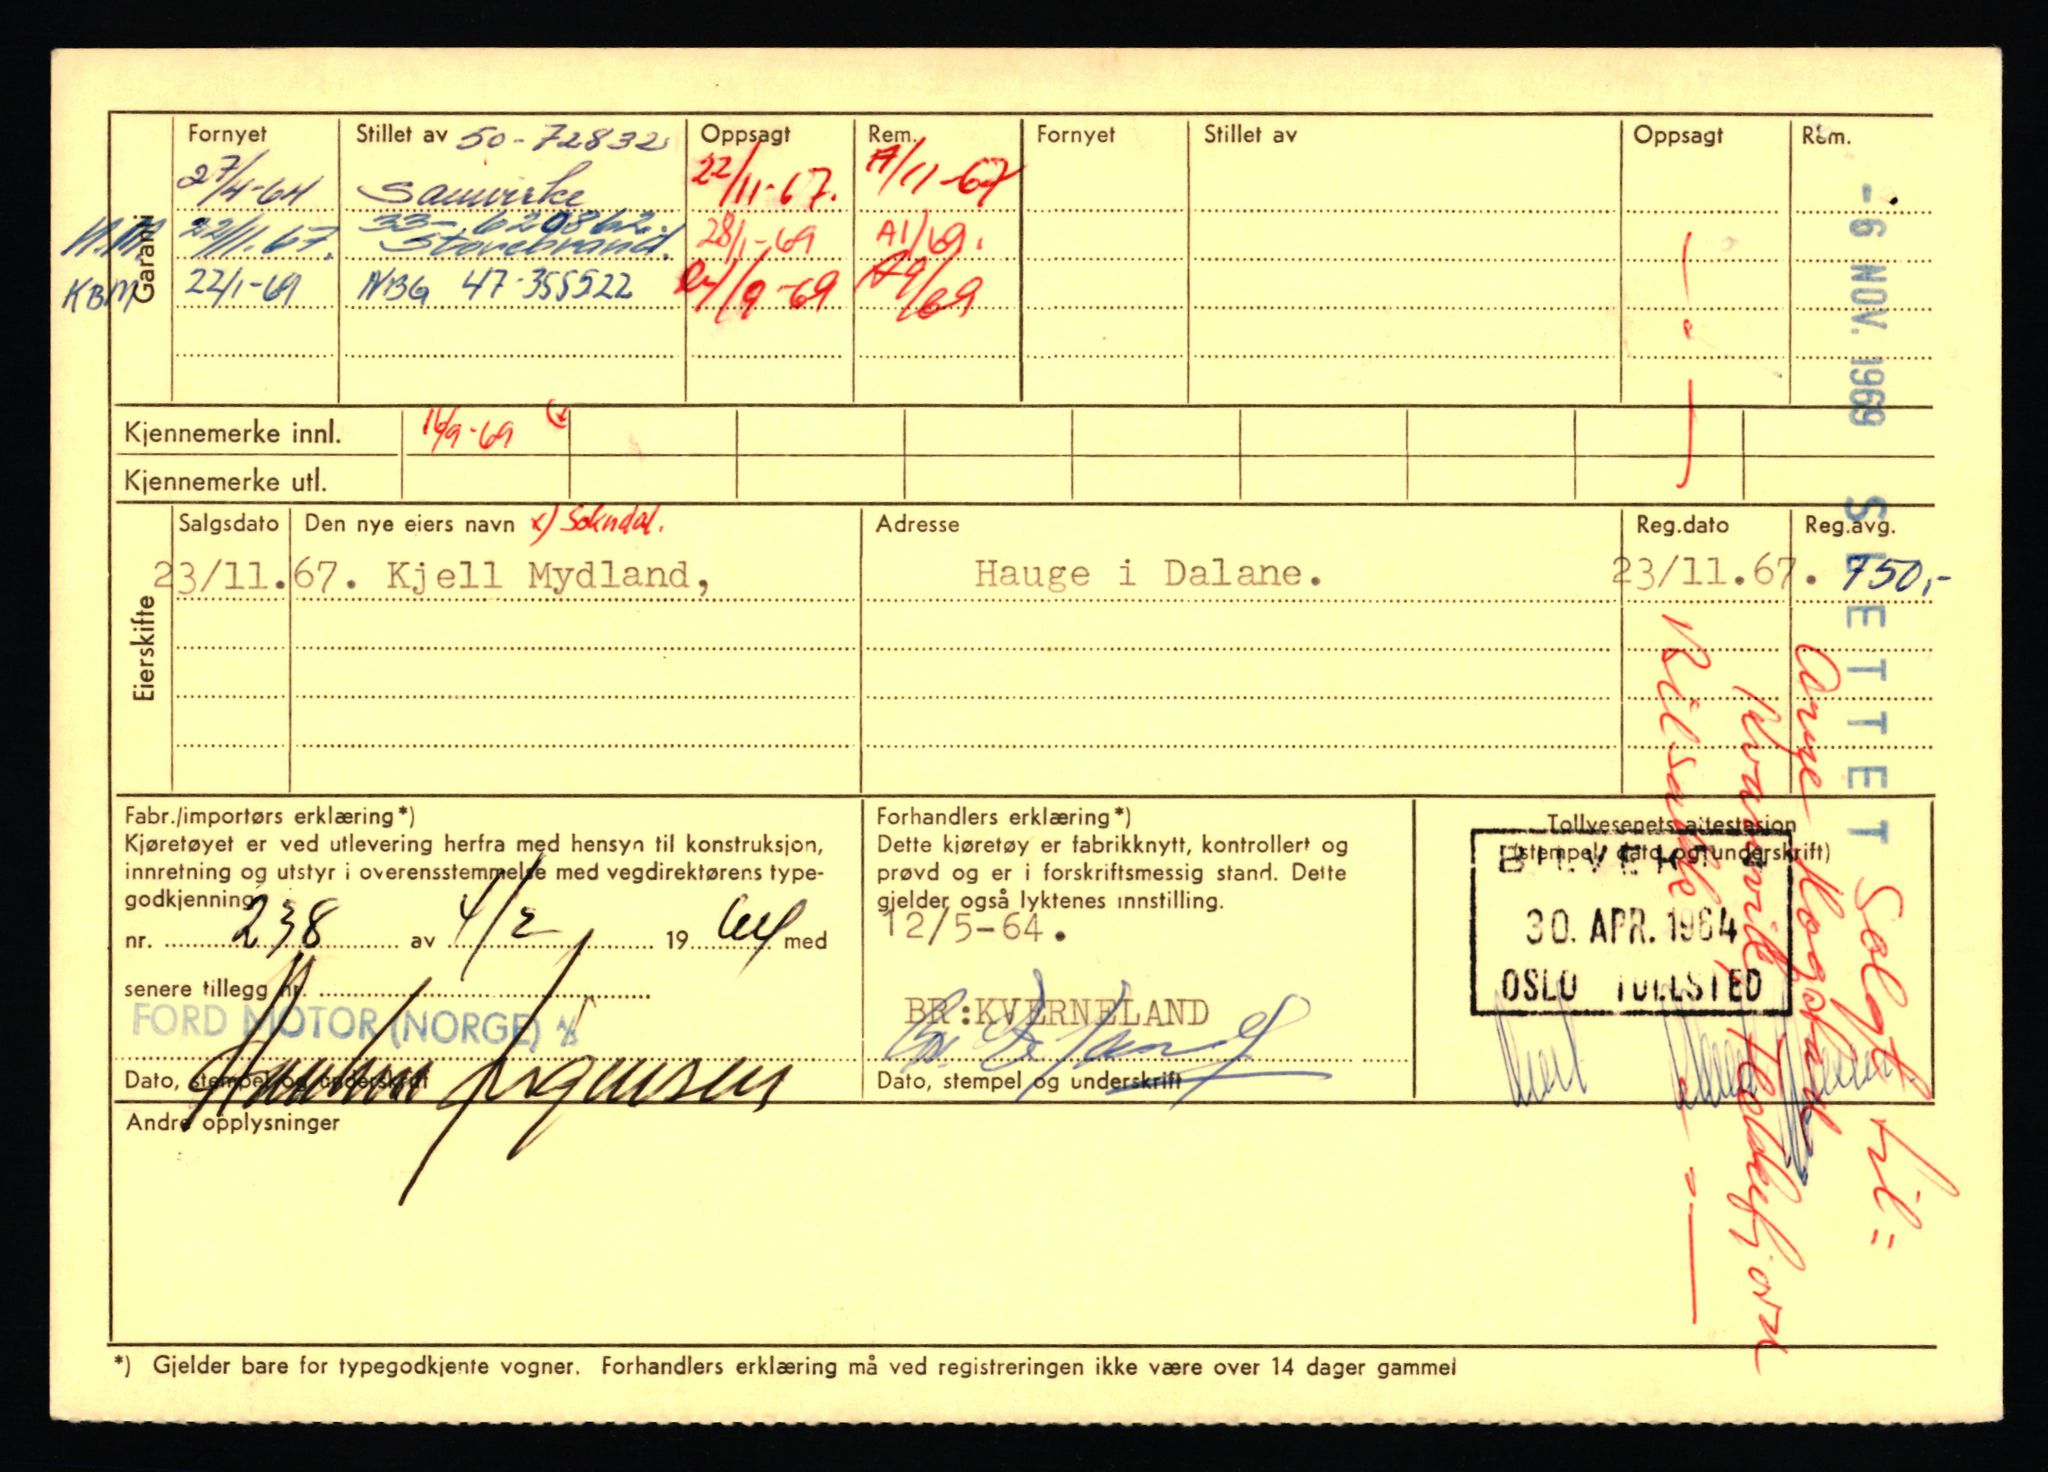 Fornyet Stillet av 50-72832 Oppsagt Rem. Fornyet Stillet av Oppsagt Rem.
Garanti
27/4-64 Samvirke 22/11-67. A/11-67
N.M. 22/11.67. 33-620862. Storebrand. 28/1-69 A1/69.
KBM 22/1-69 NBG 47-355522 /9-69 A9/69
Kjennemerke innl. 16/9-69
Kjennemerke utl.
Eierskifte
Salgsdato Den nye eiers navn x) Sokndal. Adresse Reg.dato Reg.avg.
23/11.67. Kjell Mydland, Hauge i Dalane. 23/11.67. 750,-
Fabr./importørs erklæring*)
Kjøretøyet er ved utlevering herfra med hensyn til konstruksjon,
innretning og utstyr i overensstemmelse med vegdirektørens type-
godkjenning
nr. 238 av 4/2 1964 med
senere tillegg nr.
FORD MOTOR (NORGE) A/S
Dato, stempel og underskrift
Forhandlers erklæring*)
Dette kjøretøy er fabrikknytt, kontrollert og
prøvd og er i forskriftsmessig stand. Dette
gjelder også lyktenes innstilling.
12/5-64.
BR:KVERNELAND
Dato, stempel og underskrift
Tollvesenets attestasjon
(stempel, dato og underskrift)
30. APR. 1964
OSLO TOLLSTED
Andre opplysninger
*) Gjelder bare for typegodkjente vogner. Forhandlers erklæring må ved registreringen ikke være over 14 dager gammel
- 6 NOV. 1969 SLETTET
Solgt til:
Arne
Heddefjorn